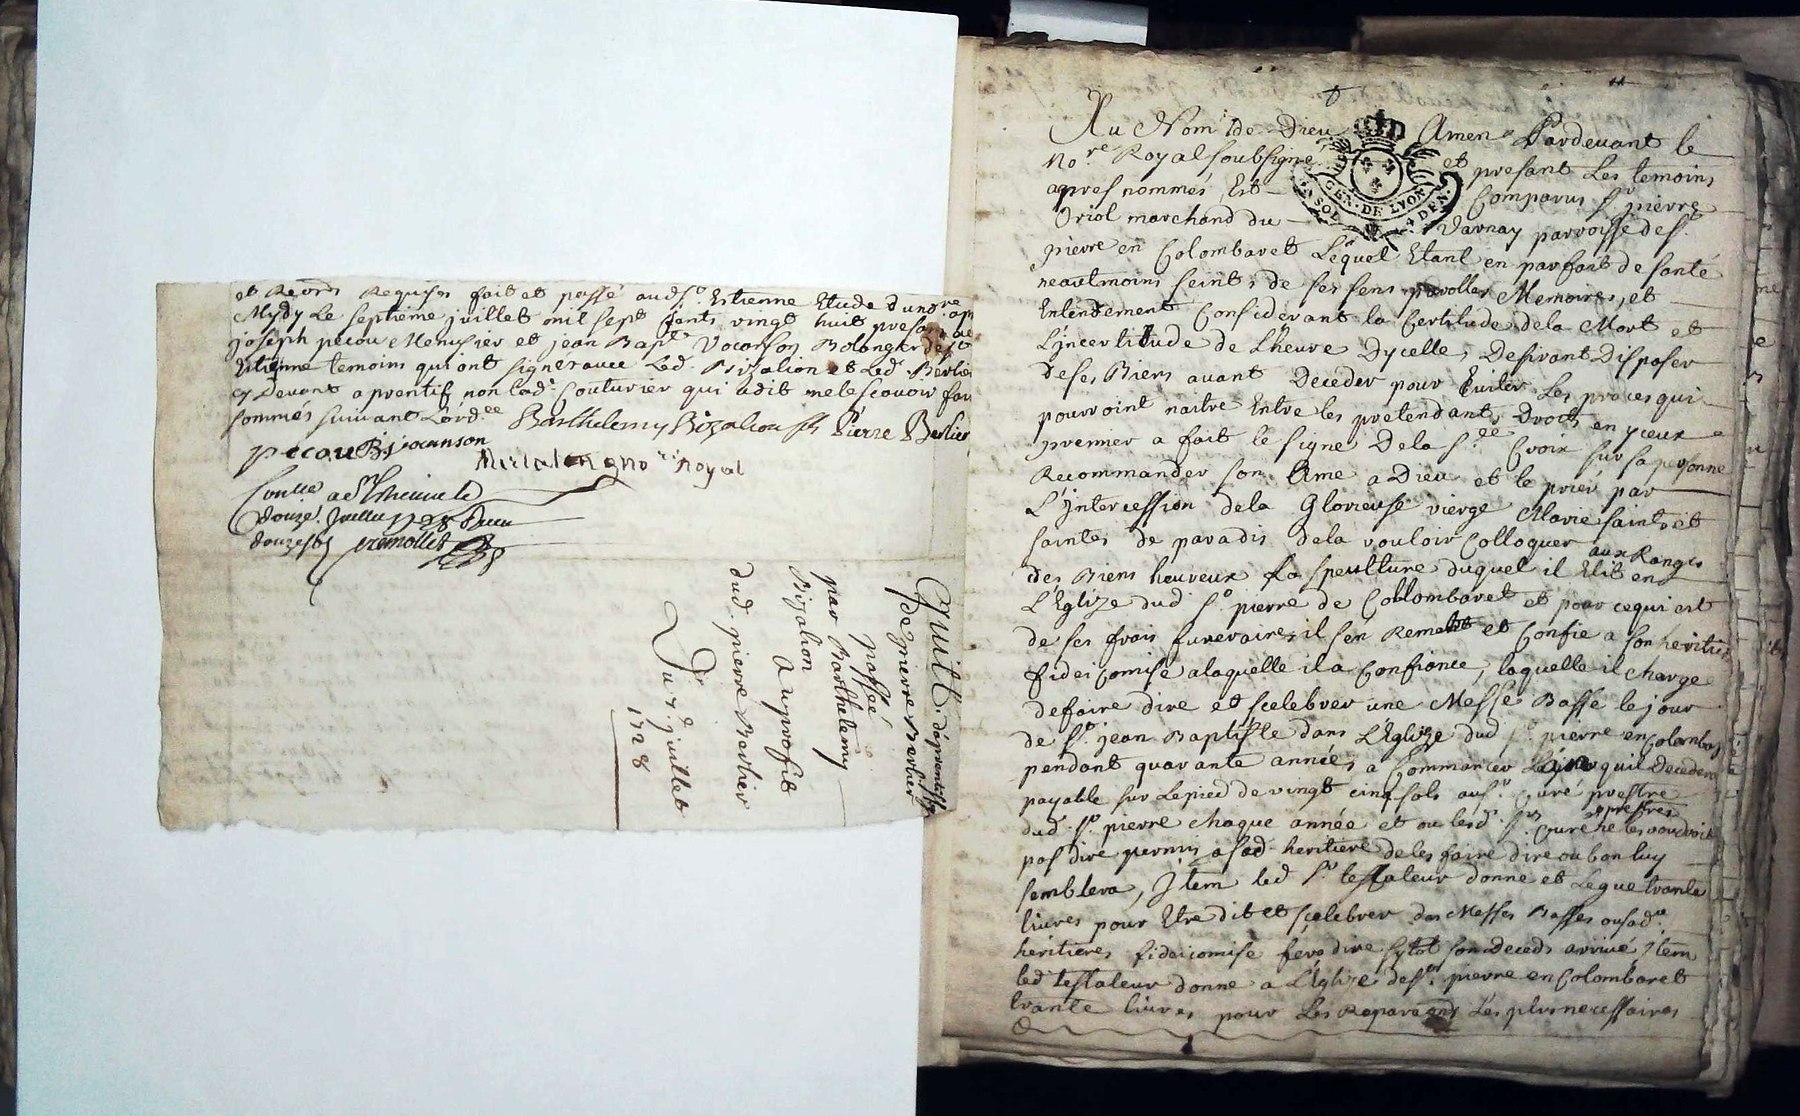 et Recors Requises fait et passé aud St. Estienne Etude dunore. apr
Mydy Le septieme juillet mil sept Cents vingt huit presants
joseph pecou Menusier et jean Bapte Vocanson Bolanger de St
Etienne temoins qui ont signé avec Led. Bizalion et Led. Berlier
cy Devant aprentif non lad. Couturier qui a dit ne le scavoir fai
sommés suivant Lordce Barthelemy Bizalion Pierre Berlier
pecou
nore Royal
Conlle a St Etienne le
douze. Juillet 1728 Receu
douze sols
Quit. d'aprentissage
de pierre Berlier
passé
par Barthelemy
Bizalion
A uprofit
dud. pierre Berlier
Du 7e. juillet
1728
Au Nom de Dieu Amen Pardevant le
Nore Royal soubsigné et presant Les temoins
apres nommés, Est Comparus Sr. pierre
Oriol marchand du Varnay parroisse de St.
pierre en Colombaret Lequel Etant en parfait de santé
neautmoins seint, de ses sens parolles Memoires, et
Entendement Considerant la Certitude dela Mort et
L'jncertitude de L'heure Dycelle, Desirant Disposer
de ses Biens avant Deceder pour Eviter Les proces qui
pourroint naitre Entre les pretendants Droits en yceux
premier a fait le signe Dela Ste Croix sur sa personne
Recommander son Ame a Dieu et le prier par
L'jntercession dela Glorieuse vierge Marie saints et
saintes de paradis dela vouloir Colloquer aux Rangs
des Biens heureux sa speulture duquel il Elit en
L'Eglize dud St pierre de Collombaret et pour cequi est
de ses frais funeraires il sen Remet et Confie a son heritie
fidei Comise a laquelle il a Confience, laquelle il charge
defaire dire et scelebrer une Messe Basse le jour
de St. jean Baptiste dans L'Eglize dud St pierre en Colomba
pendant quarante années a Commancer Lejour quil Decedera
payable sur Lepied de vingt cinq sols au Sr. Curé prestre
dud. St. pierre chaque année et ou lesd. Srs Curé prestres ne les voudroit
pas dire permis a sad. heritiere de les faire dire ou bon luy
semblera, Jtem led Sr testateur donne et Legue trante
livres pour Etre dit et scelebrer des Messes Basses ou sad.
heritieres fideicomise fera dire sytot son deceds arrivé, Jtem
led testateur donne a L'Eglize de St. pierre en Colombaret
trante livres pour Les Reparaons Les plus necessaires
GEN. DE LYON